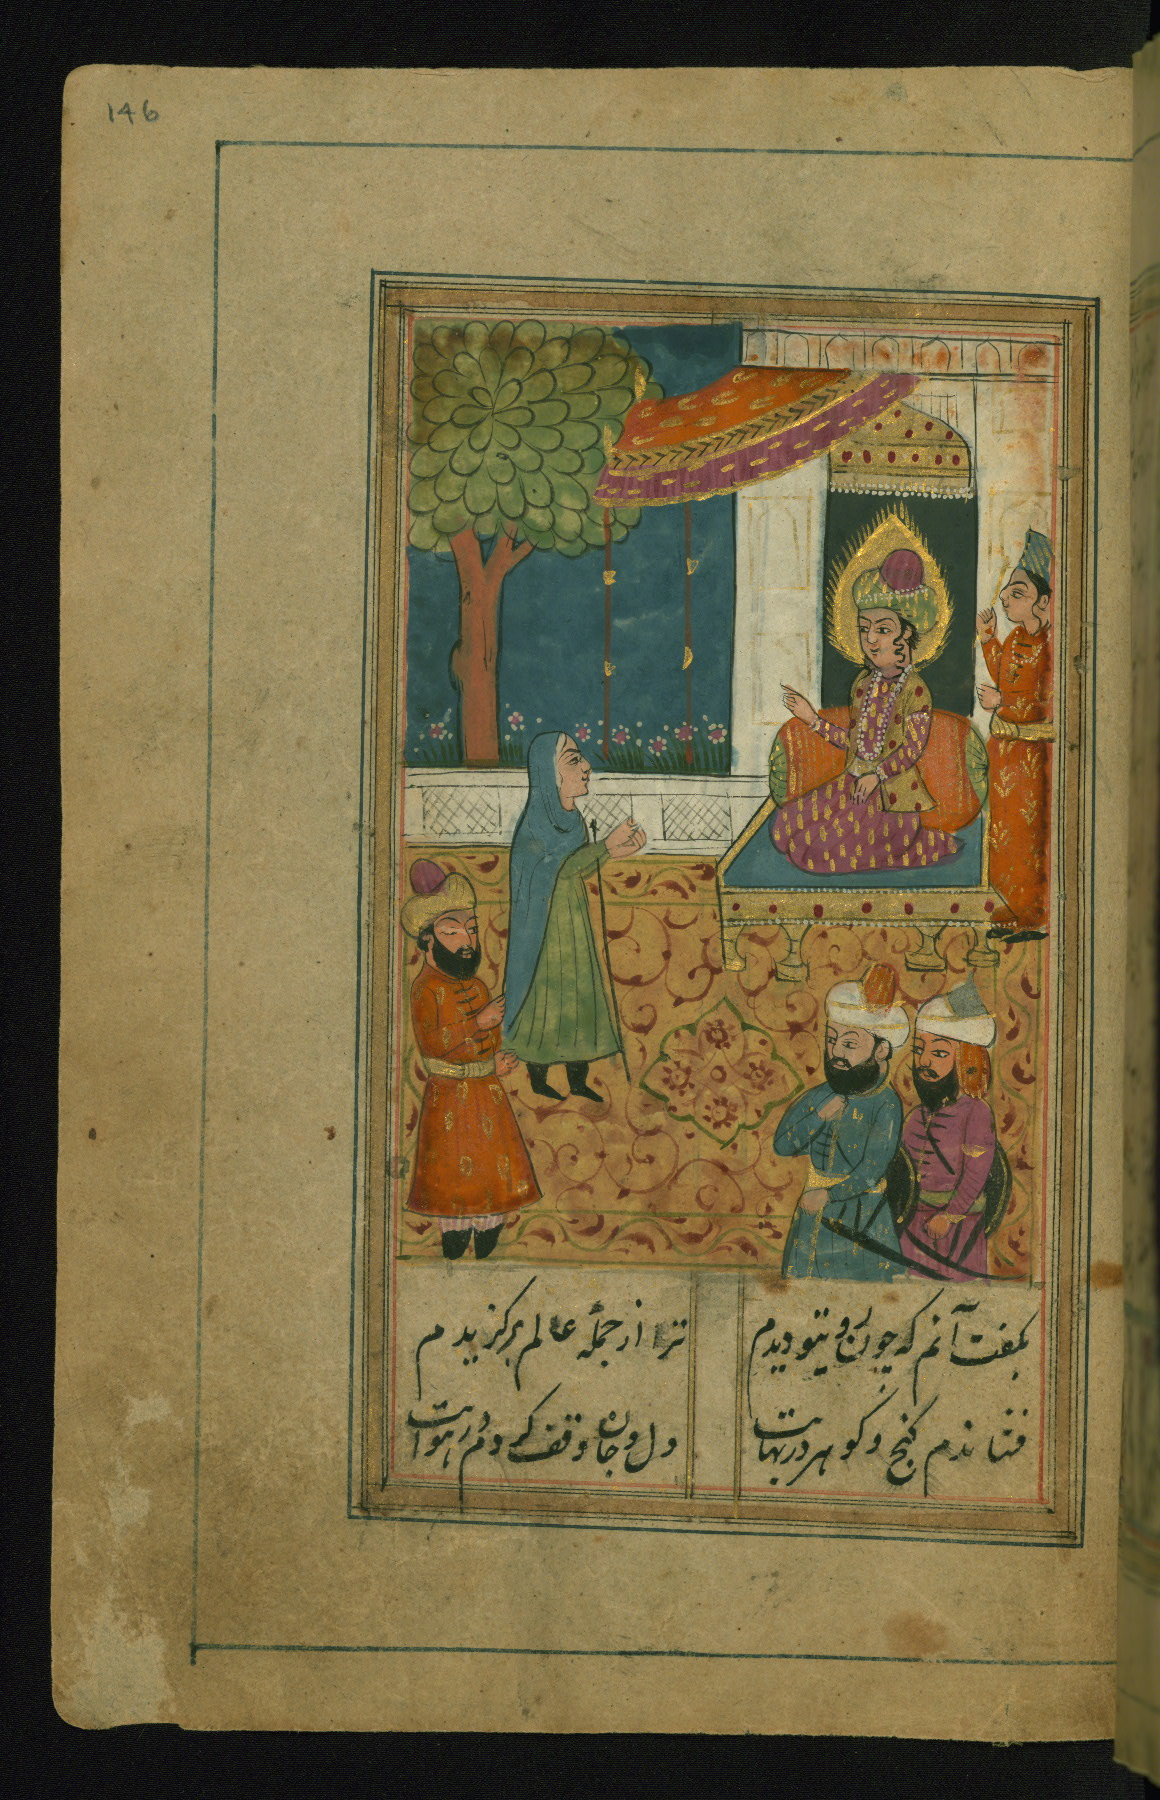 146
بگفت آنم که چون روی تو دیدم ترا از جمله عالم برگزیدم
فشاندم گنج و گوهر در بهات دل و جان وقف کردم در هوات